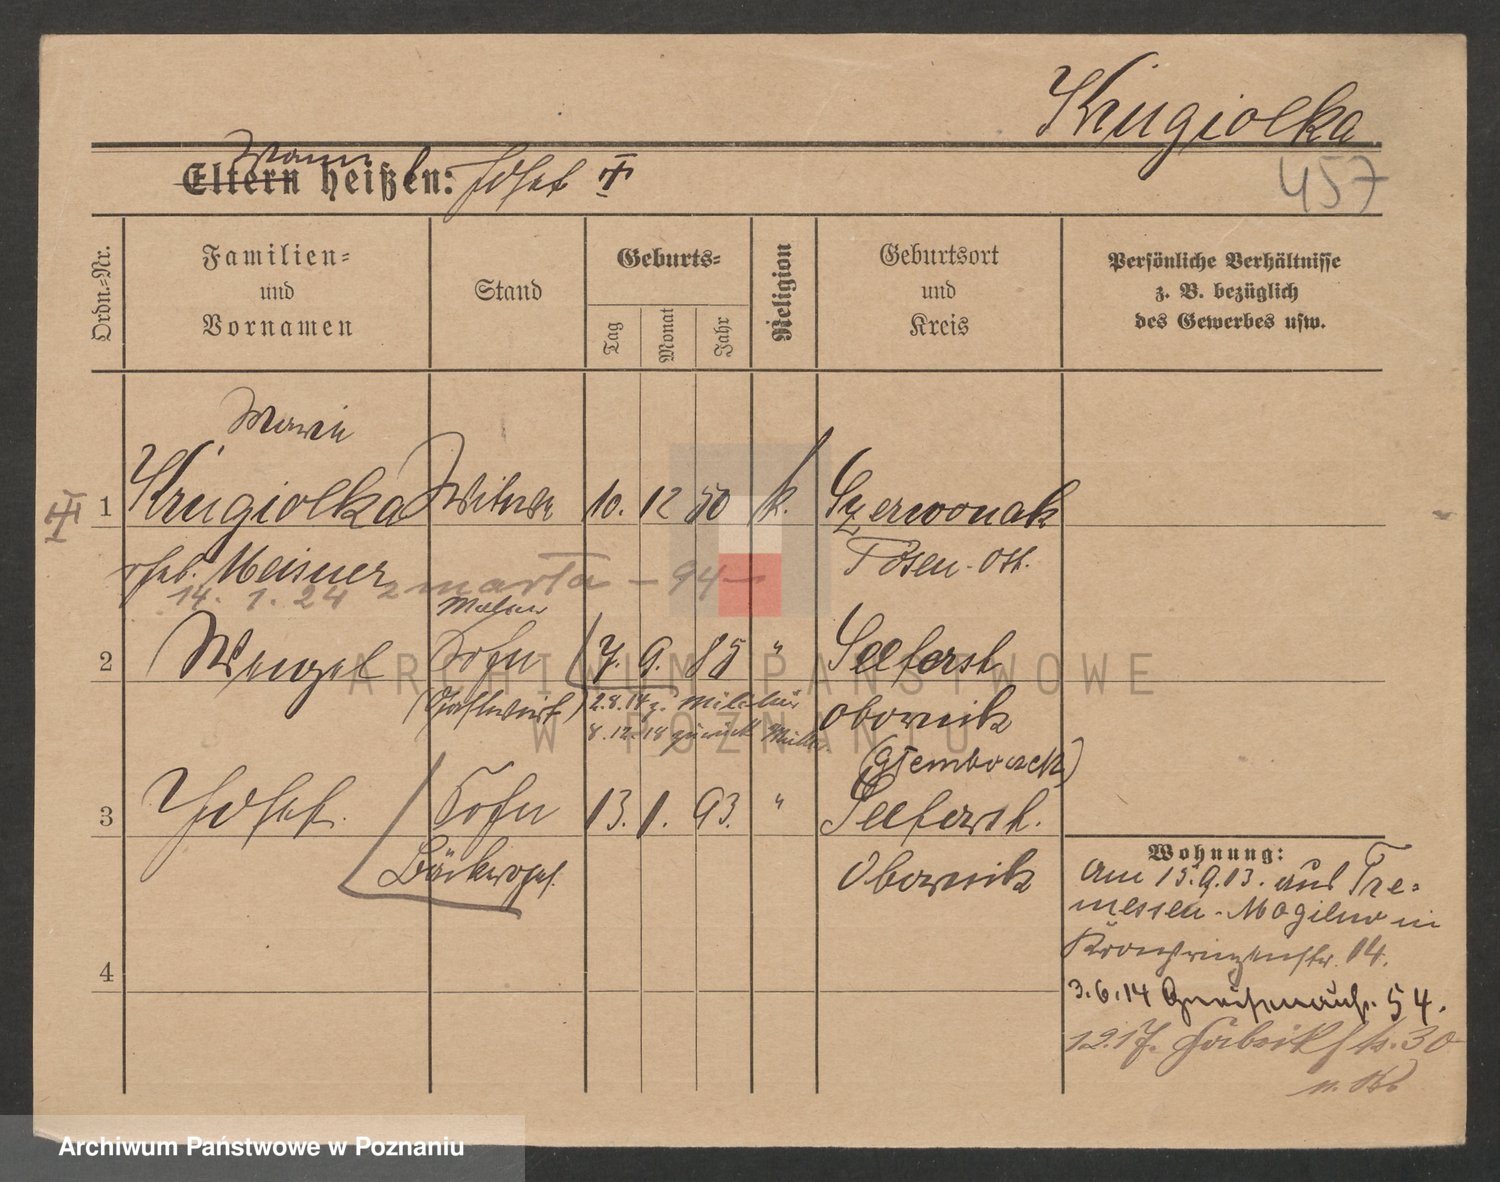 Krugiolka
457
Mann
Eltern heißen: Josef
Ordn.-Nr.
Familien-
und
Vornamen
Stand
Geburts-
Tag
Monat
Jahr
Religion
Geburtsort
und
Kreis
Persönliche Verhältnisse
z. B. bezüglich
des Gewerbes usw.
Marie
1 Krugiolka Witwe 10. 12 50 k. Czerwonak
geb. Meisner Posen-Ost.
14. 1. 24 zmarła - 94 -
Maler
2 Wenzel Sohn 7. 9. 85 " Seeforst
(Gastwirt) 2.8.14 z. Militär Obornik
8.12.18 zurück
3 Josef. Sohn 13. 1. 93. " Seeforst.
Bäckerges. Obornik
4
Wohnung:
Am 15.9.13. aus Tre-
messen-Mogilno in
Kronprinzenstr. 14.
3.6.14 Gneisenaustr. 54.
Fabrikstr. 30
ARCHIWUM PAŃSTWOWE
W POZNANIU
Archiwum Państwowe w Poznaniu